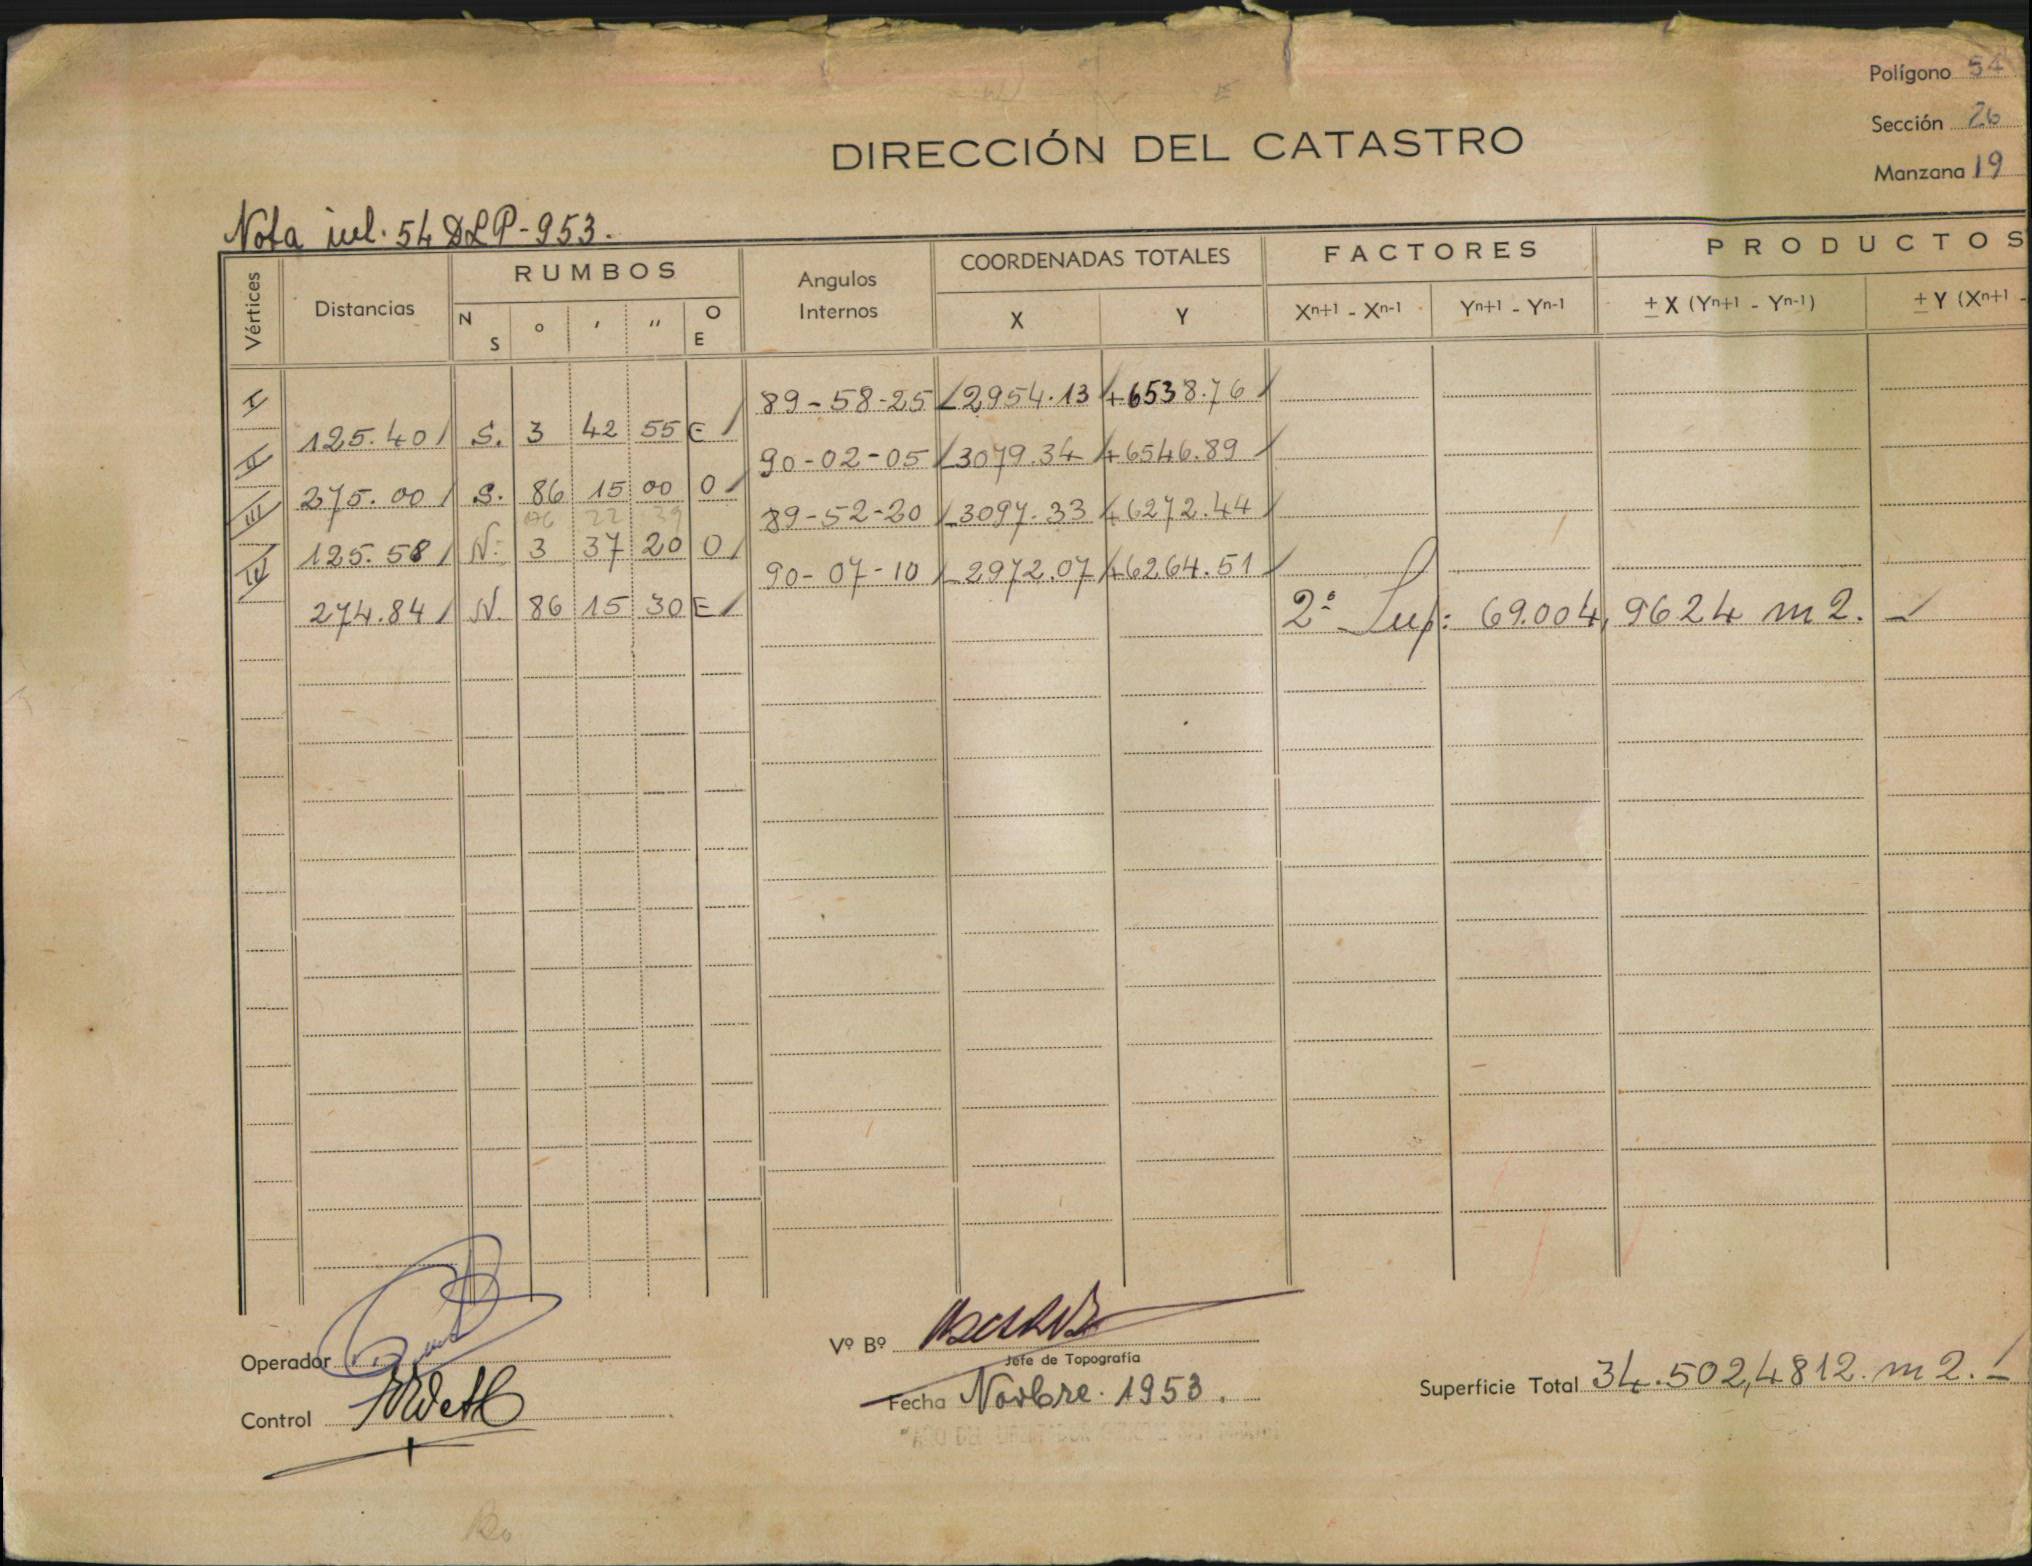 Polígono 54
Sección 26
Manzana 19
DIRECCIÓN DEL CATASTRO
Nota iul. 54 DLP-953.
Vértices Distancias RUMBOS Angulos Internos COORDENADAS TOTALES FACTORES PRODUCTOS
N S o ' '' O E X Y Xn+1 - Xn-1 Yn+1 - Yn-1 ± X (Yn+1 - Yn-1) ± Y (Xn+1 -
I 89-58-25 -2954.13 +6538.76
125.40 S. 3 42 55 E
II 90-02-05 -3079.34 +6546.89
275.00 S. 86 15 00 O
86 22 39
III 89-52-20 -3097.33 +6272.44
125.58 N. 3 37 20 O
IV 90-07-10 -2972.07 +6264.51
274.84 N. 86 15 30 E
2ª Sup: 69.004,9624 m2.-
Operador
Control
Vº Bº
Jefe de Topografía
Fecha Novbre. 1953.
Superficie Total 34.502,4812. m2.-